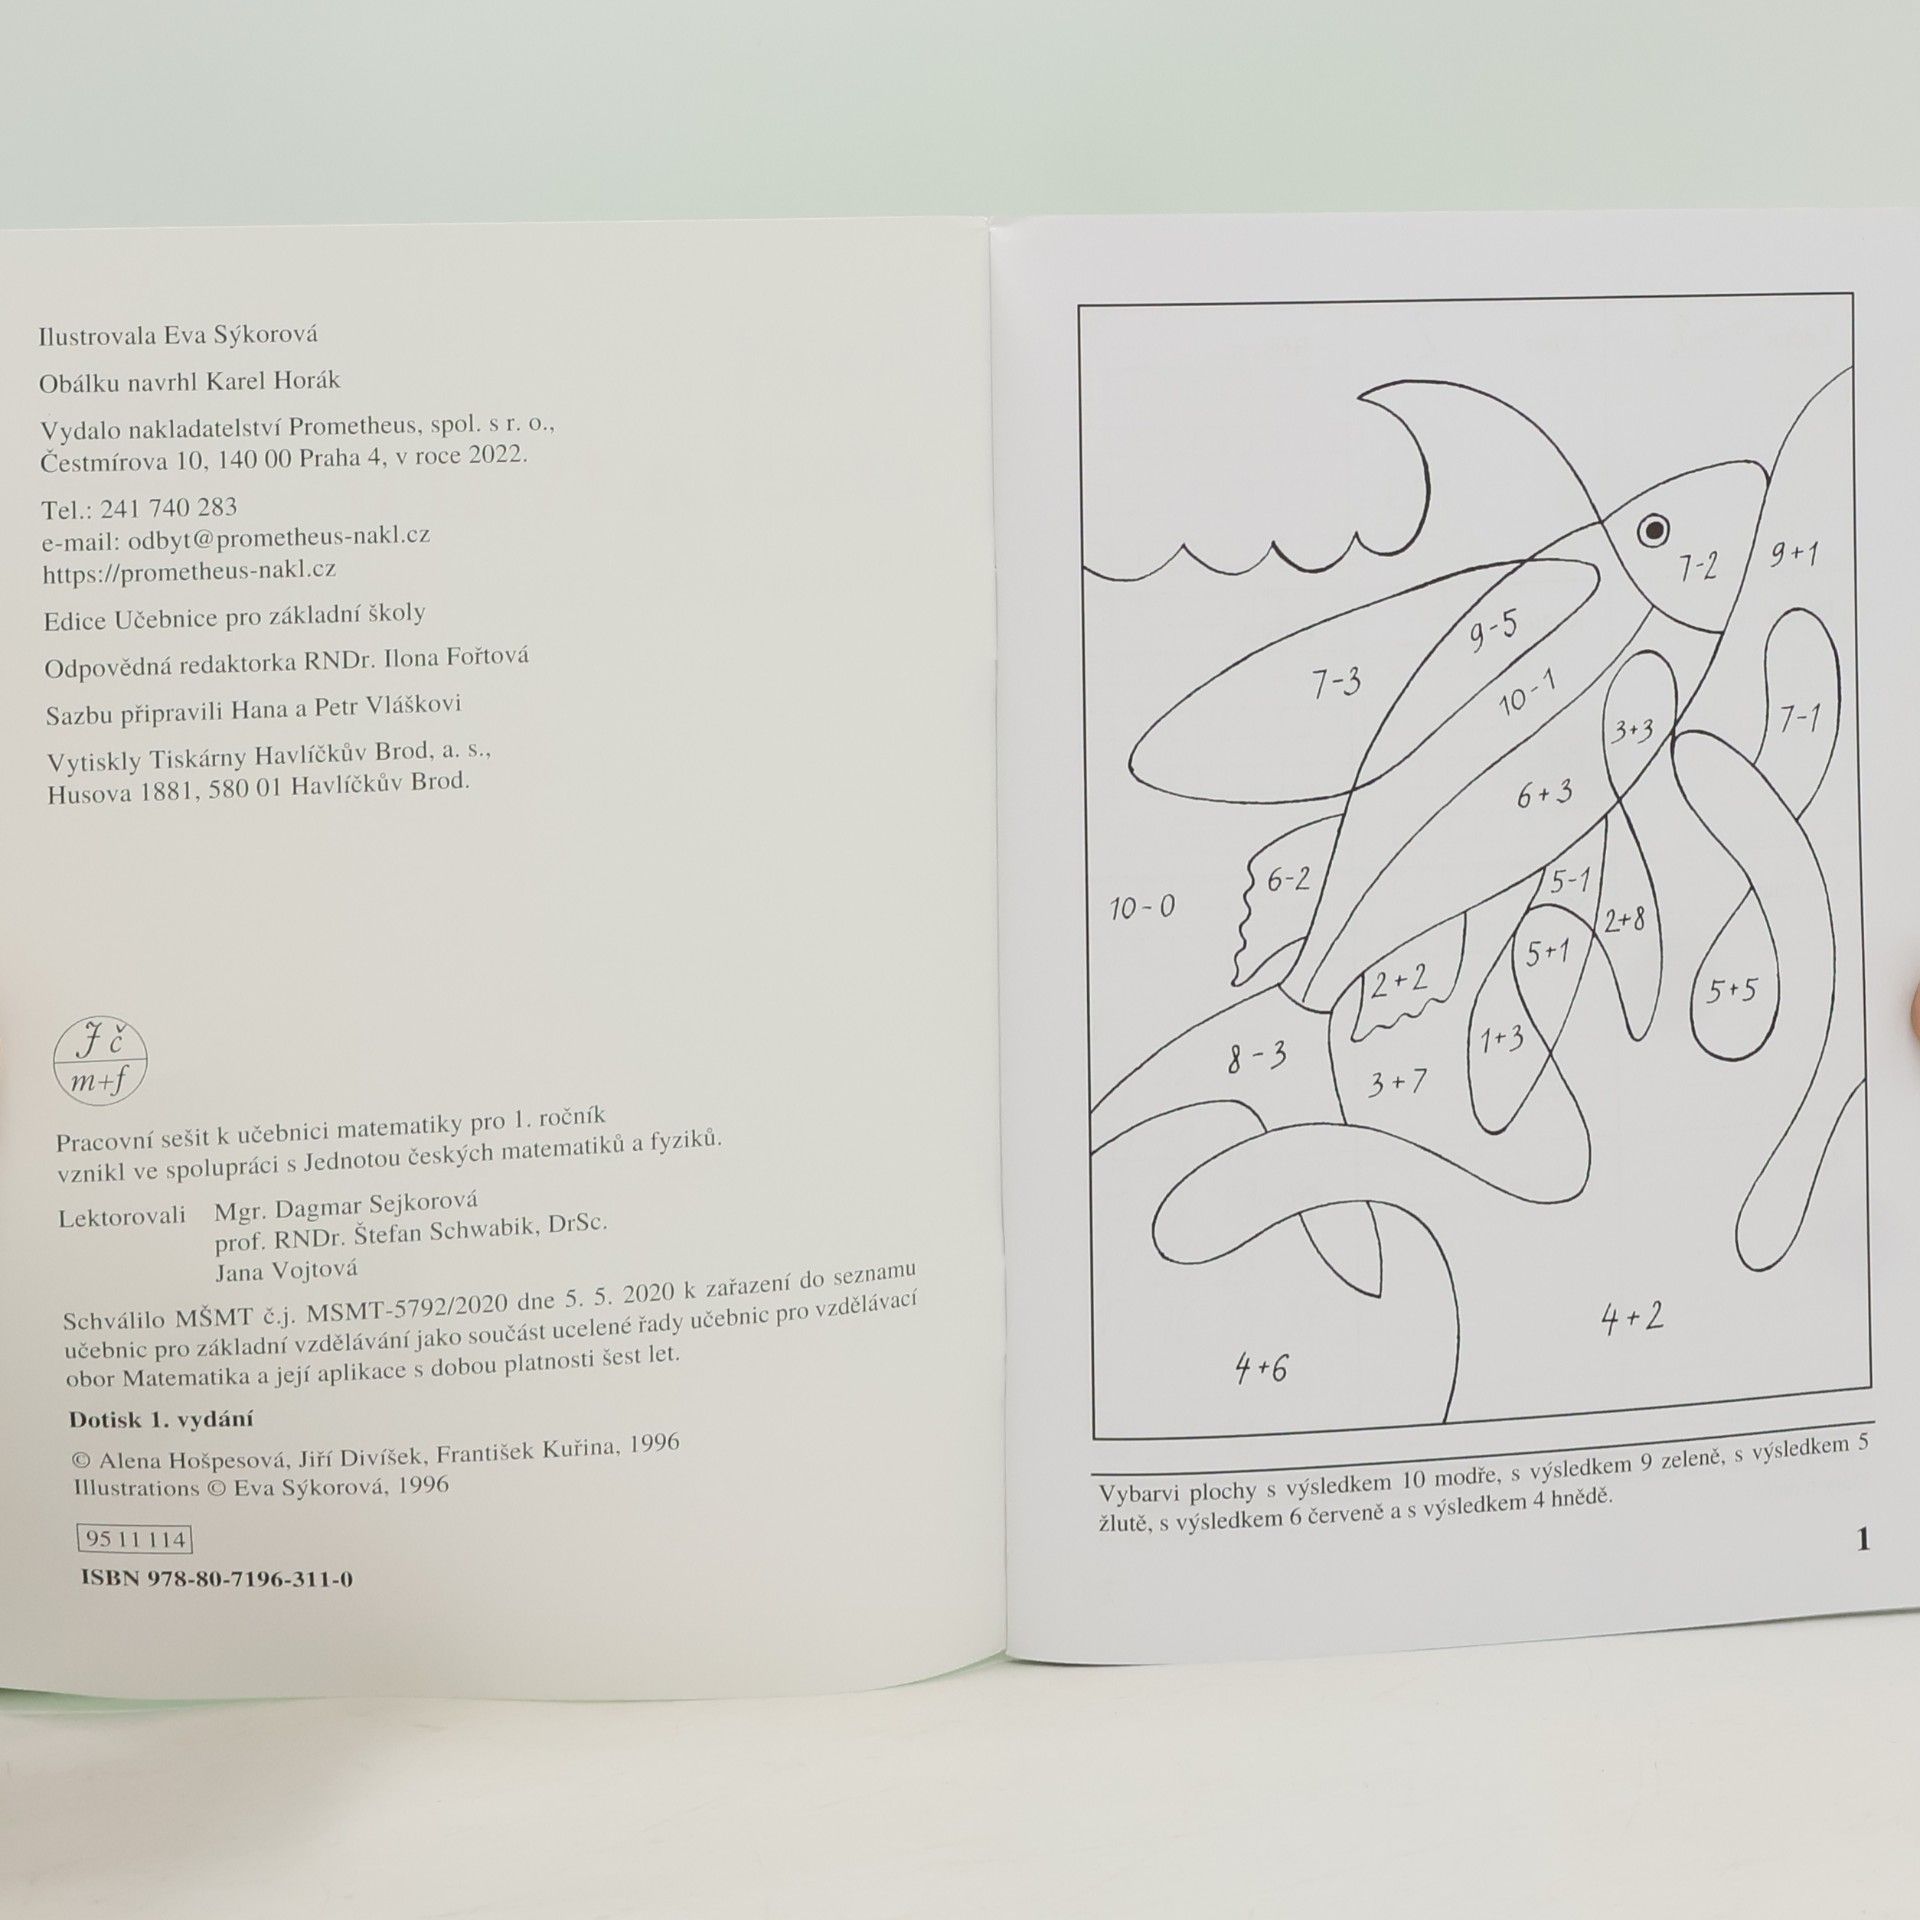 Ilustrovala Eva Sýkorová
Obálku navrhl Karel Horák
Vydalo nakladatelství Prometheus, spol. s r. o.,
Čestmírova 10, 140 00 Praha 4, v roce 2022.
Tel.: 241 740 283
e-mail: odbyt@prometheus-nakl.cz
https://prometheus-nakl.cz
Edice Učebnice pro základní školy
Odpovědná redaktorka RNDr. Ilona Fořtová
Sazbu připravili Hana a Petr Vláškovi
Vytiskly Tiskárny Havlíčkův Brod, a. s.,
Husova 1881, 580 01 Havlíčkův Brod.
J č
m+f
Pracovní sešit k učebnici matematiky pro 1. ročník
vznikl ve spolupráci s Jednotou českých matematiků a fyziků.
Lektorovali Mgr. Dagmar Sejkorová
prof. RNDr. Štefan Schwabik, DrSc.
Jana Vojtová
Schválilo MŠMT č.j. MSMT-5792/2020 dne 5. 5. 2020 k zařazení do seznamu
učebnic pro základní vzdělávání jako součást ucelené řady učebnic pro vzdělávací
obor Matematika a její aplikace s dobou platnosti šest let.
Dotisk 1. vydání
© Alena Hošpesová, Jiří Divíšek, František Kuřina, 1996
Illustrations © Eva Sýkorová, 1996
95 11 114
ISBN 978-80-7196-311-0
7-2
9+1
9-5
7-3
10-1
3+3
7-1
6+3
6-2
5-1
10-0
2+8
5+1
2+2
5+5
1+3
8-3
3+7
4+2
4+6
Vybarvi plochy s výsledkem 10 modře, s výsledkem 9 zeleně, s výsledkem 5
žlutě, s výsledkem 6 červeně a s výsledkem 4 hnědě.
1